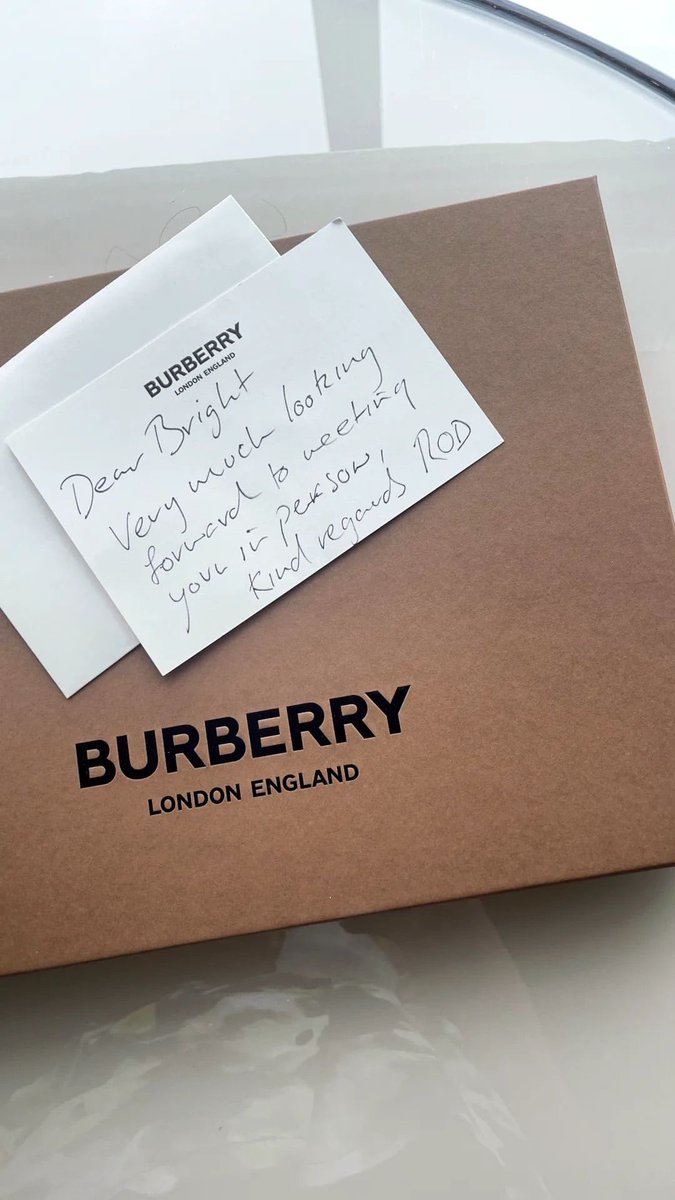 BURBERRY
LONDON ENGLAND
Dear Bright
Very much looking
forward to meeting
you in person,
Kind regards ROD
BURBERRY
LONDON ENGLAND